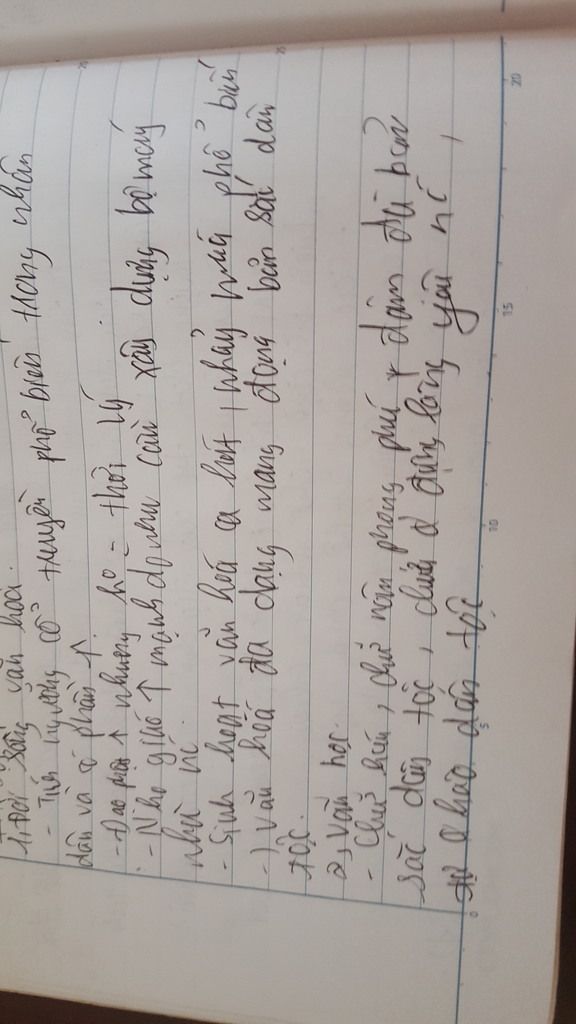 1, Đời sống văn hoá.
- Tín ngưỡng cổ truyền phổ biến trong nhân
dân và ↑.
- Đạo phật ↑ nhưng ko = thời lý
- Nho giáo ↑ mạnh do nhu cầu xây dựng bộ máy
nhà nc
- Sinh hoạt văn hoá ca hát, nhảy múa phổ biến
-) Văn hoá đa dạng mang đậng bản sắc dân
tộc.
2, Văn học.
- Chữ hán, chữ nôm phong phú + đâm đà bản
sắc dân tộc, chứa đựng lòng yêu nc,
tự hào dân tộc
0 5 10 15 20